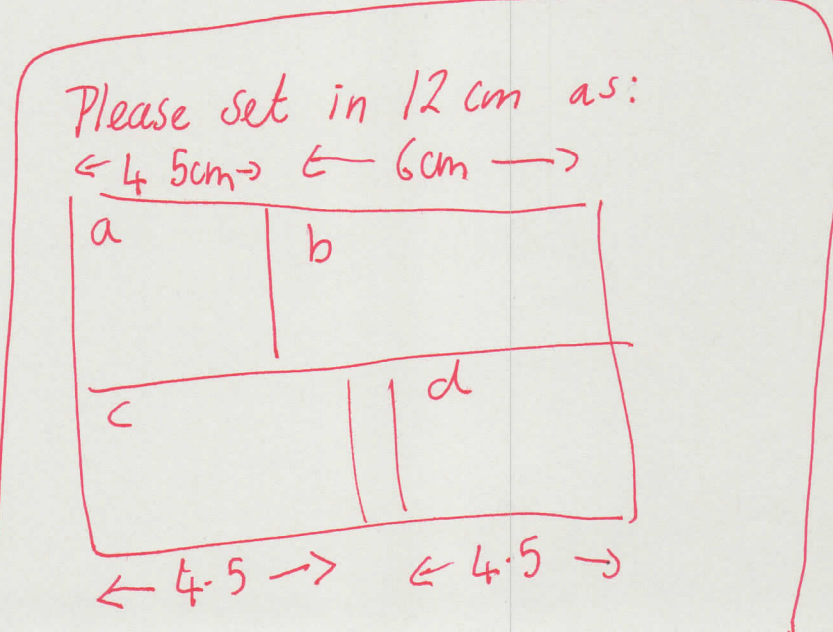 Please set in 12 cm as:
← 4 5cm → ← 6cm →
a b
c d
← 4.5 → ← 4.5 →